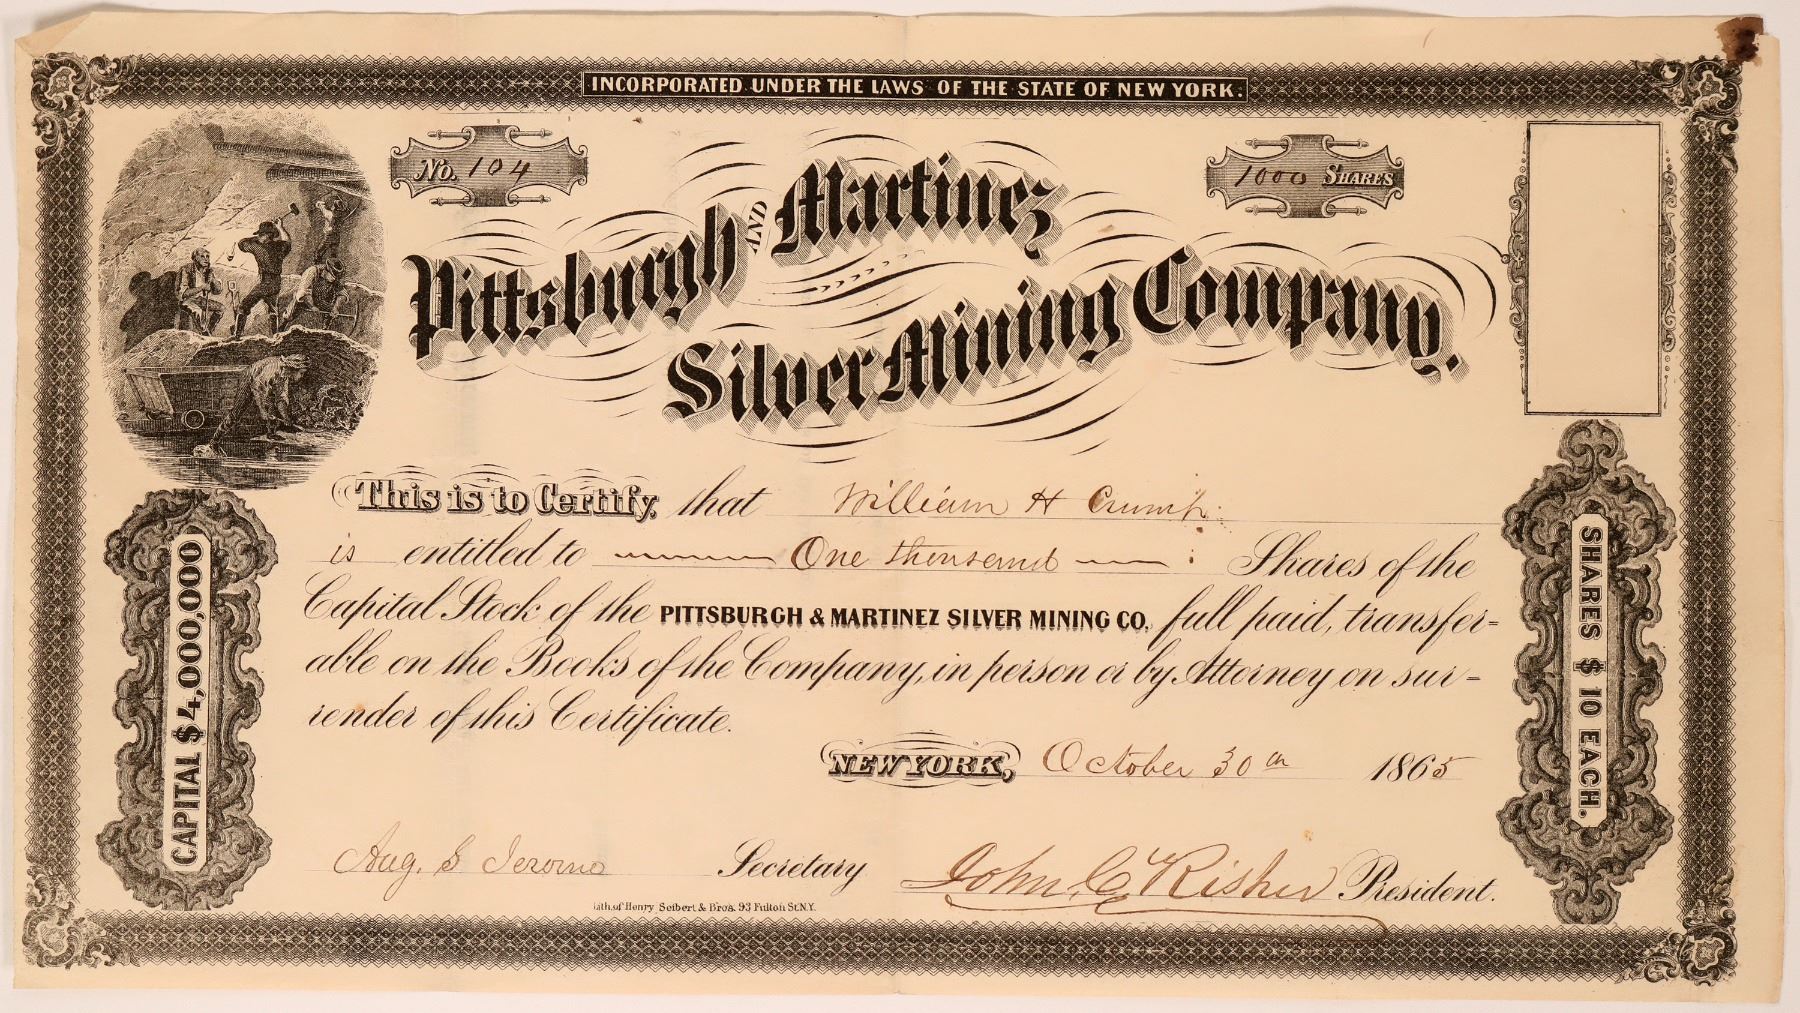 INCORPORATED UNDER THE LAWS OF THE STATE OF NEW YORK.
No. 104
1000 SHARES
Pittsburgh AND Martinez
Silver Mining Company.
This is to Certify, that William H Crump
is entitled to One thousand Shares of the
Capital Stock of the PITTSBURGH & MARTINEZ SILVER MINING CO. full paid, transfer=
able on the Books of the Company, in person or by Attorney on sur=
render of this Certificate.
NEW YORK, October 30th 1865
Aug. S Jerome Secretary John C Risher President.
Lith. of Henry Seibert & Bros. 93 Fulton St. N.Y.
CAPITAL $4,000,000
SHARES $10 EACH.